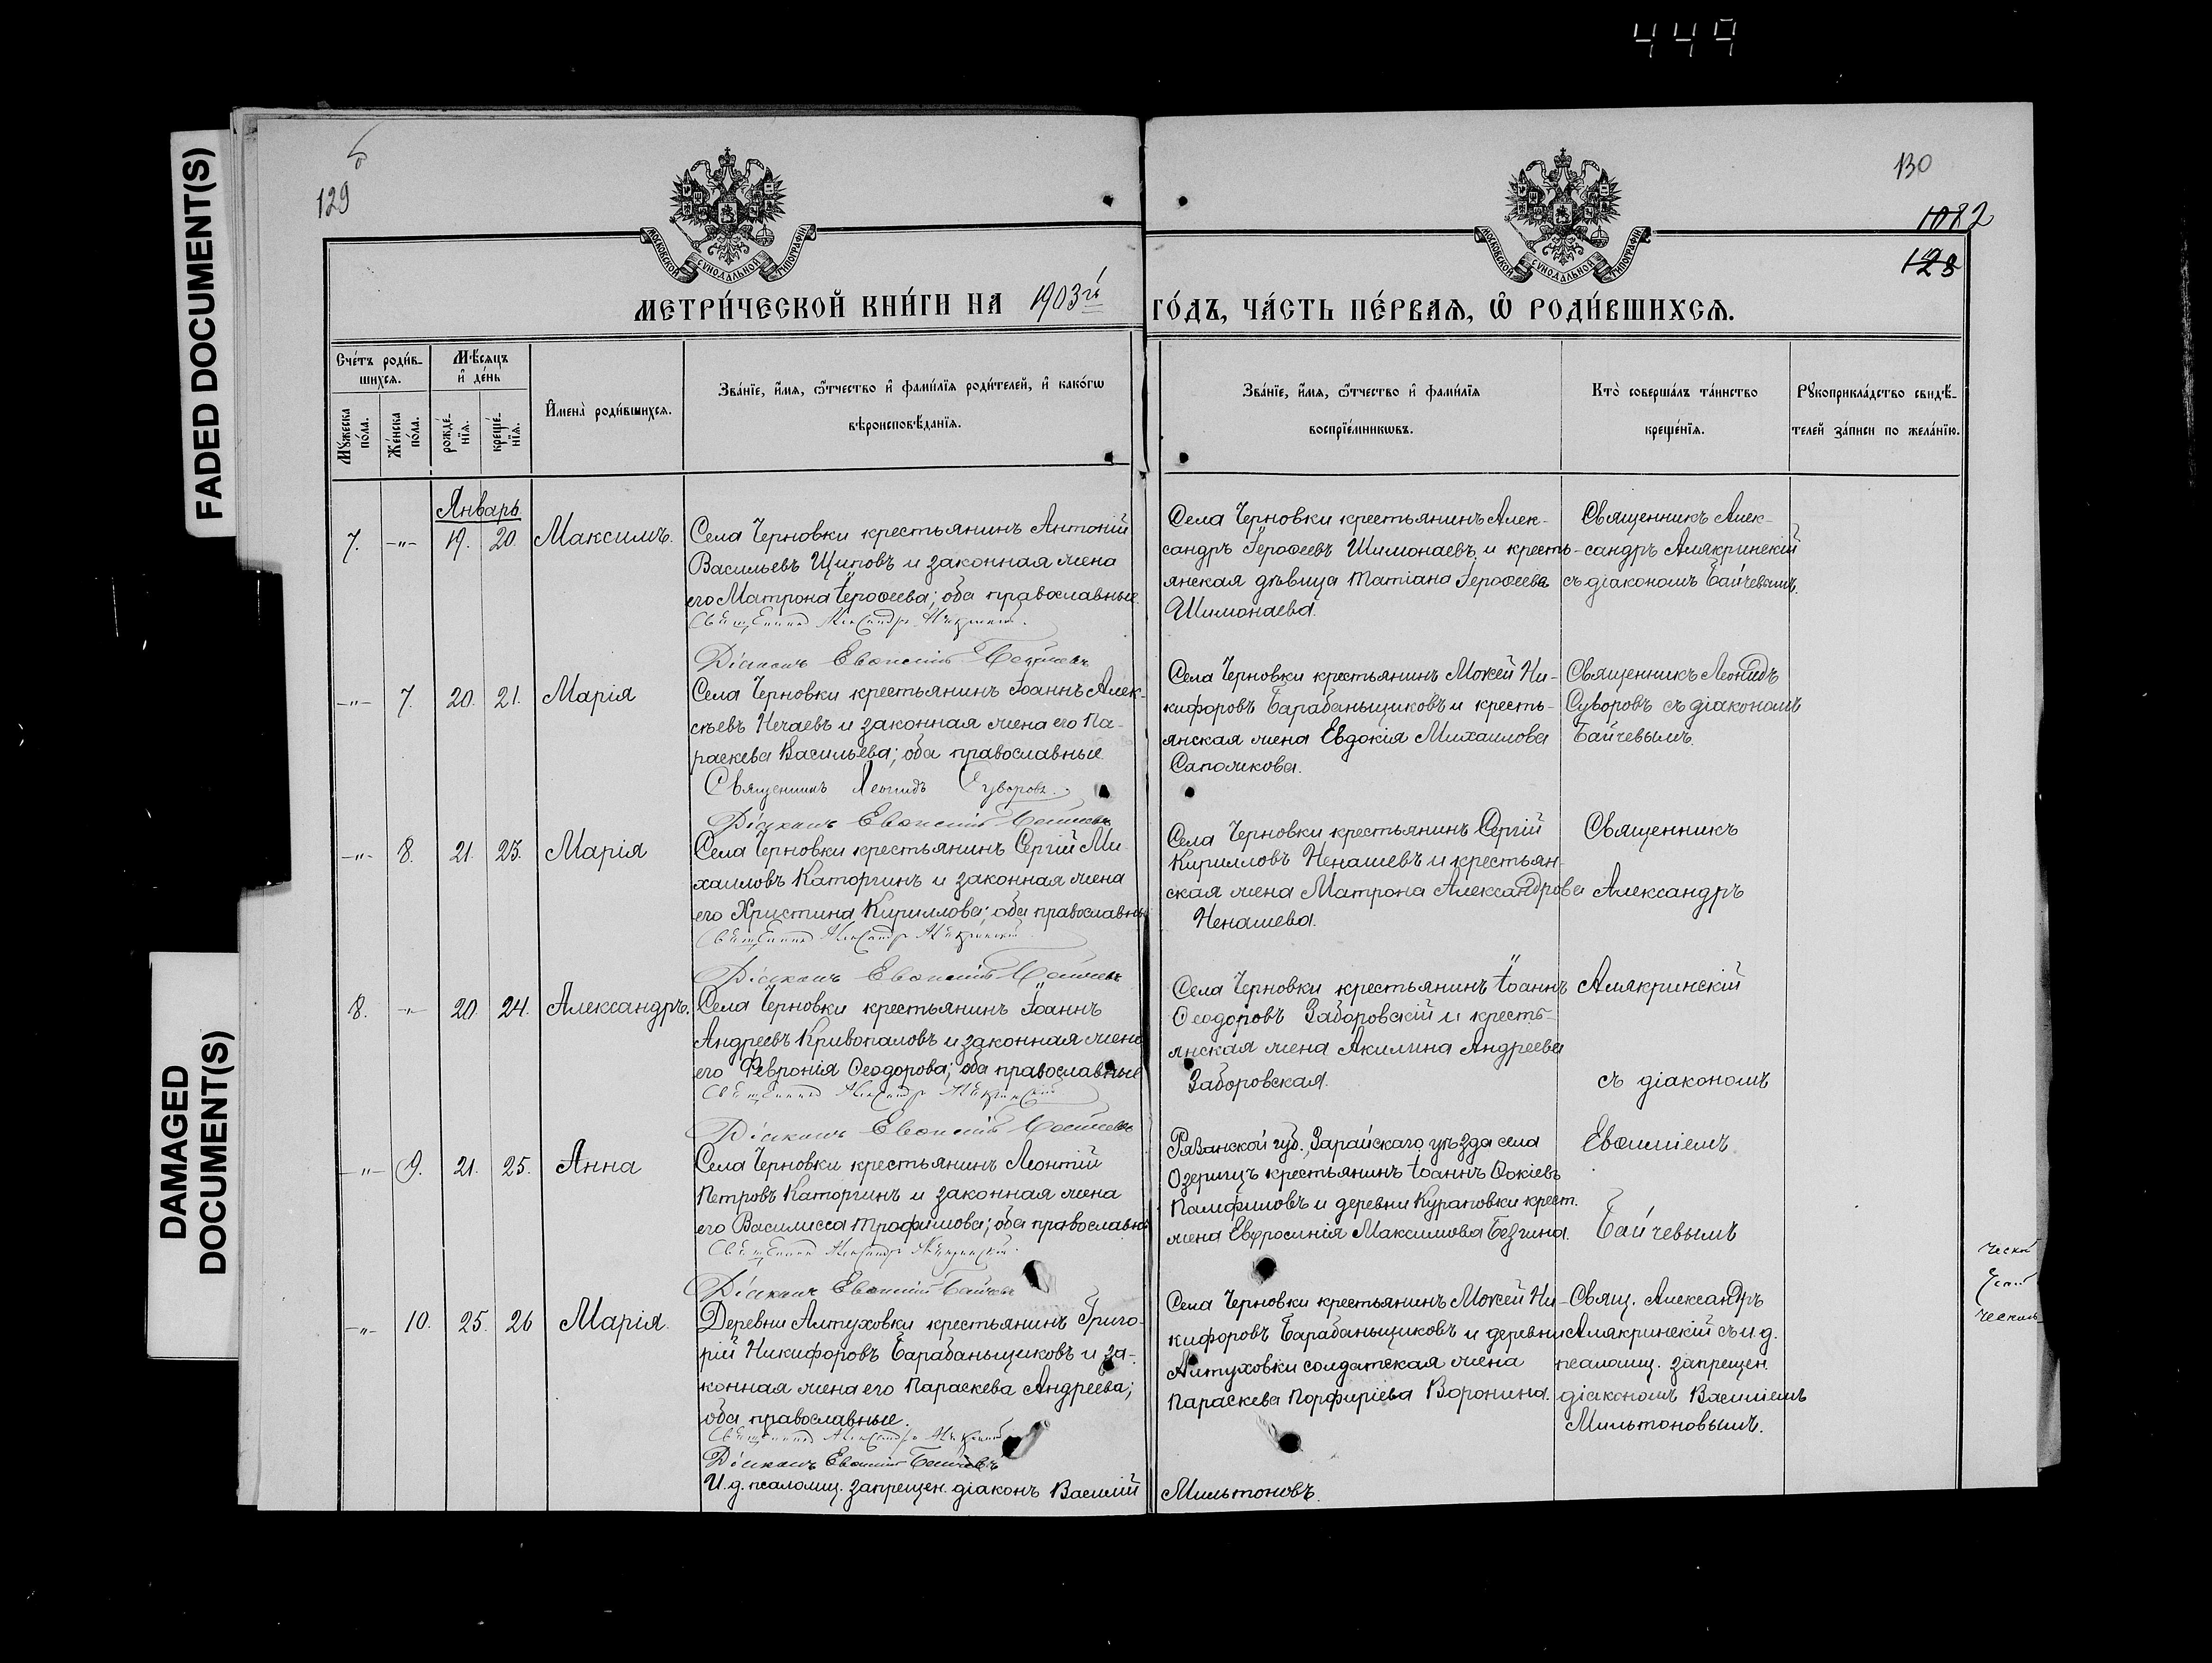 449
FADED DOCUMENT(S)
DAMAGED
DOCUMENT(S)
129
130
1082
128
МОСКОВСКОЙ СѴНОДАЛЬНОЙ ТИПОГРАФІИ
МОСКОВСКОЙ СѴНОДАЛЬНОЙ ТИПОГРАФІИ
МЕТРИ́ЧЕСКОЙ КНИ́ГИ НА 1903й ГО́ДЪ, ЧА́СТЬ ПЕ́РВАѦ, Ѡ҆ РОДИ́ВШИХСѦ.
Сче́тъ роди́в-
шихсѧ.
Мꙋ́жеска по́ла.
Же́нска по́ла.
Мѣ́сѧцъ и҆ де́нь
рожде́-нїѧ.
креще́-нїѧ.
И҆мена̀ роди́вшихсѧ.
Зва́нїе, и҆́мѧ, ѻ҆́тчество и҆ фами́лїѧ роди́телей, и҆ како́гѡ
вѣроисповѣ́данїѧ.
Зва́нїе, и҆́мѧ, ѻ҆́тчество и҆ фами́лїѧ
воспрїе́мникѡвъ.
Кто̀ соверша́лъ та́инство
креще́нїѧ.
Рꙋкоприкла́дство свидѣ́-
телей за́писи по жела́нїю.
Январь
7. -"- 19. 20. Максимъ.
Села Черновки крестьянинъ Антоній
Васильевъ Щиповъ и законная жена
его Матрона Іероѳеева; оба православные.
Священникъ Александръ Амякринскій.
Діаконъ Евѳимій Байчевъ
Села Черновки крестьянинъ Алек-
сандръ Іероѳеевъ Шимонаевъ и кресть-
янская дѣвица Татіана Іероѳеева
Шимонаева.
Священникъ Алек-
сандръ Амякринскій
съ діакономъ Байчевымъ.
-"- 7. 20. 21. Марія
Села Черновки крестьянинъ Іоаннъ Алек-
сѣевъ Нечаевъ и законная жена его Па-
раскева Васильева; оба православные.
Священникъ Леонидъ Суворовъ.
Діаконъ Евѳимій Байчевъ
Села Черновки крестьянинъ Мокей Ни-
кифоровъ Барабаньщиковъ и кресть-
янская жена Евдокія Михаилова
Сапожкова.
Священникъ Леонидъ
Суворовъ съ діакономъ
Байчевымъ.
-"- 8. 21. 23. Марія
Села Черновки крестьянинъ Сергій Ми-
хаиловъ Каторгинъ и законная жена
его Христина Кириллова; оба православны
Священникъ Александръ Амякринскій
Діаконъ Евѳимій Байчевъ
Села Черновки крестьянинъ Сергій
Кирилловъ Ненашевъ и крестьян-
ская жена Матрона Александрова
Ненашева.
Священникъ
Александръ
8. -"- 20. 24. Александръ.
Села Черновки крестьянинъ Іоаннъ
Андреевъ Кривопаловъ и законная жена
его Февронія Ѳеодорова; оба православные
Священникъ Александръ Амякринскій
Діаконъ Евѳимій Байчевъ
Села Черновки крестьянинъ Іоаннъ
Ѳеодоровъ Заборовскій и кресть-
янская жена Акилина Андреева
Заборовская.
Амякринскій
съ діакономъ
-"- 9. 21. 25. Анна
Села Черновки крестьянинъ Леонтій
Петровъ Каторгинъ и законная жена
его Василисса Трофимова; оба православны
Священникъ Александръ Амякринскій.
Діаконъ Евѳимій Байчевъ
Рязанской губ., Зарайскаго уѣзда села
Озерицъ крестьянинъ Іоаннъ Ѳокіевъ
Памфиловъ и деревни Курановки крест.
жена Евфросинія Максимова Безгина.
Евѳиміемъ
Байчевымъ
-"- 10. 25. 26 Марія.
Деревни Алтуховки крестьянинъ Григо-
рій Никифоровъ Барабаньщиковъ и за-
конная жена его Параскева Андреева;
оба православные.
Священникъ Александръ Амякринскій
Діаконъ Евѳимій Байчевъ
И.д. псаломщ. запрещен. діаконъ Василій Мильтоновъ.
Села Черновки крестьянинъ Мокей Ни-
кифоровъ Барабаньщиковъ и деревни
Алтуховки солдатская жена
Параскева Порфиріева Воронина.
Свящ. Александръ
Амякринскій съ и.д.
псаломщ. запрещен.
діакономъ Василіемъ
Мильтоновымъ.